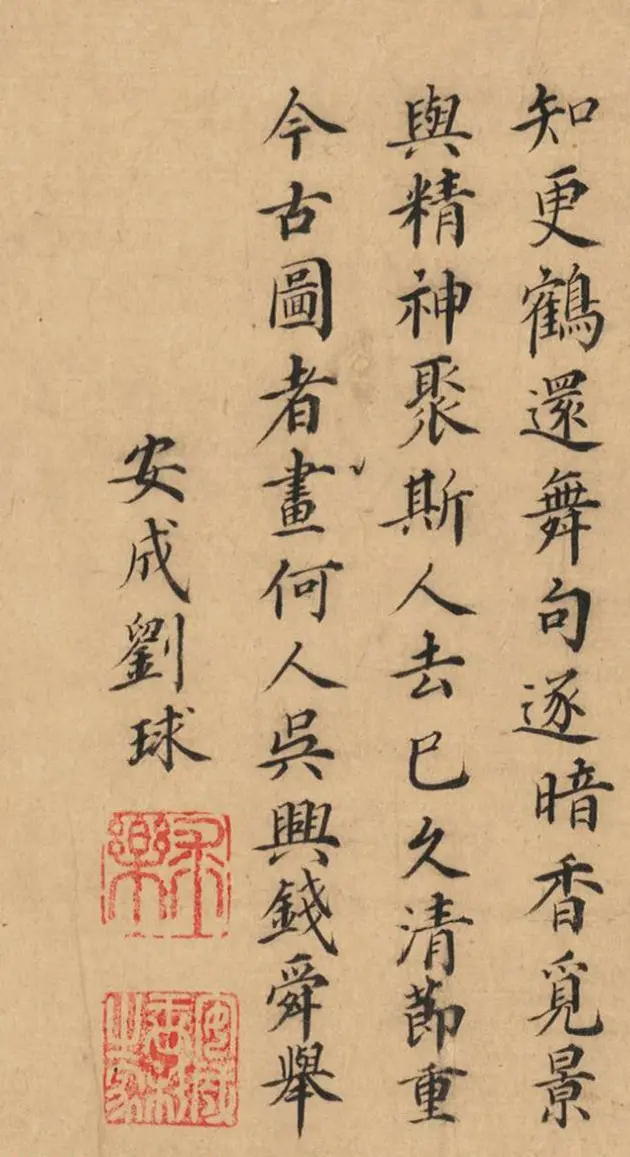 知更鶴還舞句遂暗香覓景
與精神聚斯人去已久清節重
今古圖者畫何人吳興錢舜舉
安成劉球
求樂